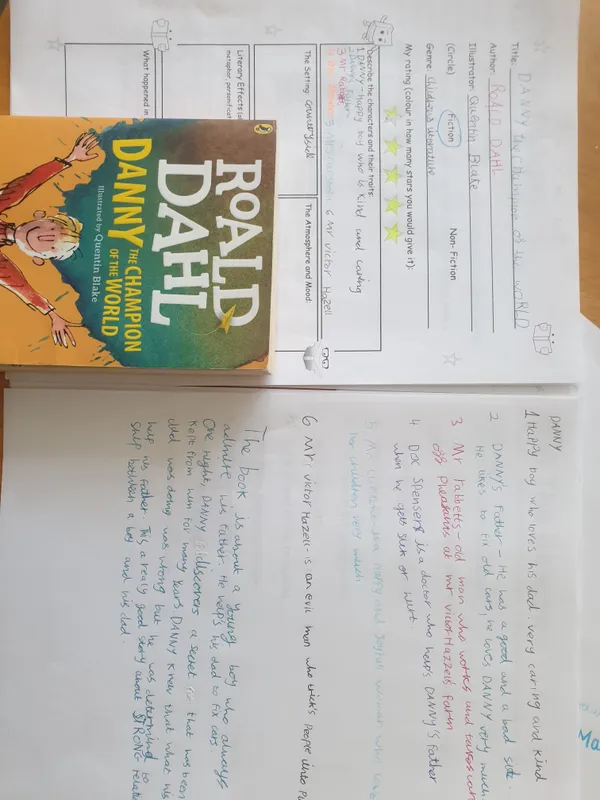 Title: DANNY the CHAMPION of the WORLD
Author: ROALD DAHL
Illustrator: Quentin Blake
(Circle) Fiction Non-Fiction
Genre: Childrens literature
My rating (colour in how many stars you would give it):
Describe the characters and their traits:
1 DANNY-Happy boy who is kind and caring
2 Danny's Father
3 Mr Rabbetts
6 Mr victor Hazell
The Setting: Countryside
The Atmosphere and Mood:
Literary Effects
What happened in
ROALD
DAHL
DANNY
THE CHAMPION
OF THE WORLD
Illustrated by Quentin Blake
DANNY
1 Happy boy who loves his dad. very caring and kind
2 DANNY's Father - He has a good and a bad side.
He likes to fix old cars, he loves DANNY very much
3 Mr rabbetts - old man who works and takes care
off Pheasants at mr victor Hazzells farm
4 Doc Spensers is a doctor who helps DANNY's Father
when he gets sick or hurt.
5 Mr is a happy and joyful woman who loves
her children very much
6 Mr victor Hazell - is an evil man who trick's People into
The book is about a young boy who always
admire his father. He help's his dad to fix cars.
One night, DANNY discovers a secret that has been
kept from him for many years. DANNY knew that what his
dad was doing was wrong but he was determind to
help his father. This a realy good story about STRONG relation
ship between a boy and his dad.
Ma